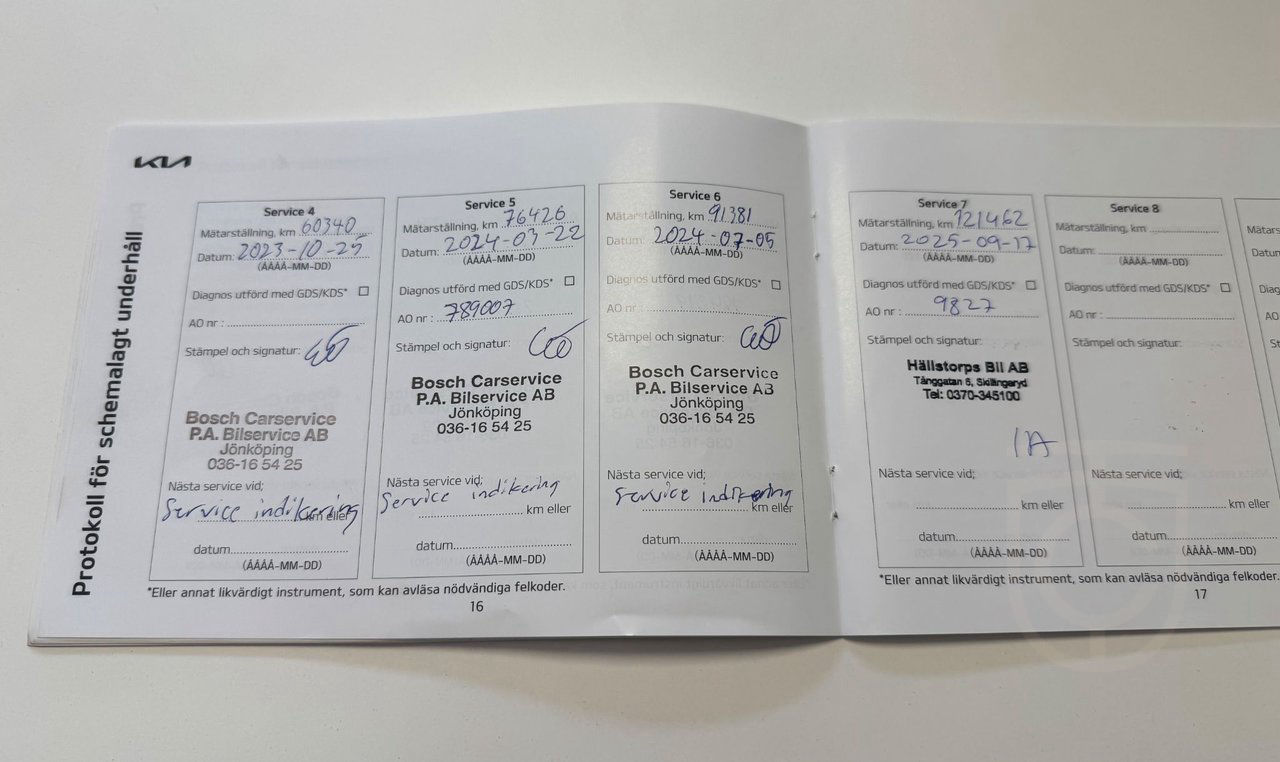 KIA
Protokoll för schemalagt underhåll
Service 4
Mätarställning, km 60340
Datum: 2023-10-25
(ÅÅÅÅ-MM-DD)
Diagnos utförd med GDS/KDS*
AO nr :
Stämpel och signatur:
Bosch Carservice
P.A. Bilservice AB
Jönköping
036-16 54 25
Nästa service vid;
Service indikering
km eller
datum
(ÅÅÅÅ-MM-DD)
Service 5
Mätarställning, km 76426
Datum: 2024-03-22
(ÅÅÅÅ-MM-DD)
Diagnos utförd med GDS/KDS*
AO nr : 789007
Stämpel och signatur:
Bosch Carservice
P.A. Bilservice AB
Jönköping
036-16 54 25
Nästa service vid;
Service indikering
km eller
datum
(ÅÅÅÅ-MM-DD)
Service 6
Mätarställning, km 91381
Datum: 2024-07-05
(ÅÅÅÅ-MM-DD)
Diagnos utförd med GDS/KDS*
AO nr :
Stämpel och signatur:
Bosch Carservice
P.A. Bilservice AB
Jönköping
036-16 54 25
Nästa service vid;
Service indikering
km eller
datum
(ÅÅÅÅ-MM-DD)
*Eller annat likvärdigt instrument, som kan avläsa nödvändiga felkoder.
16
Service 7
Mätarställning, km 121462
Datum: 2025-09-17
(ÅÅÅÅ-MM-DD)
Diagnos utförd med GDS/KDS*
AO nr : 9827
Stämpel och signatur:
Hällstorps Bil AB
Tånggatan 6, Skillingaryd
Tel: 0370-345100
Nästa service vid;
km eller
datum
(ÅÅÅÅ-MM-DD)
Service 8
Mätarställning, km
Datum:
(ÅÅÅÅ-MM-DD)
Diagnos utförd med GDS/KDS*
AO nr :
Stämpel och signatur:
Nästa service vid;
km eller
datum
(ÅÅÅÅ-MM-DD)
Mätars
Datum:
Diagno
AO nr
Stä
Näst
*Eller annat likvärdigt instrument, som kan avläsa nödvändiga felkoder.
17